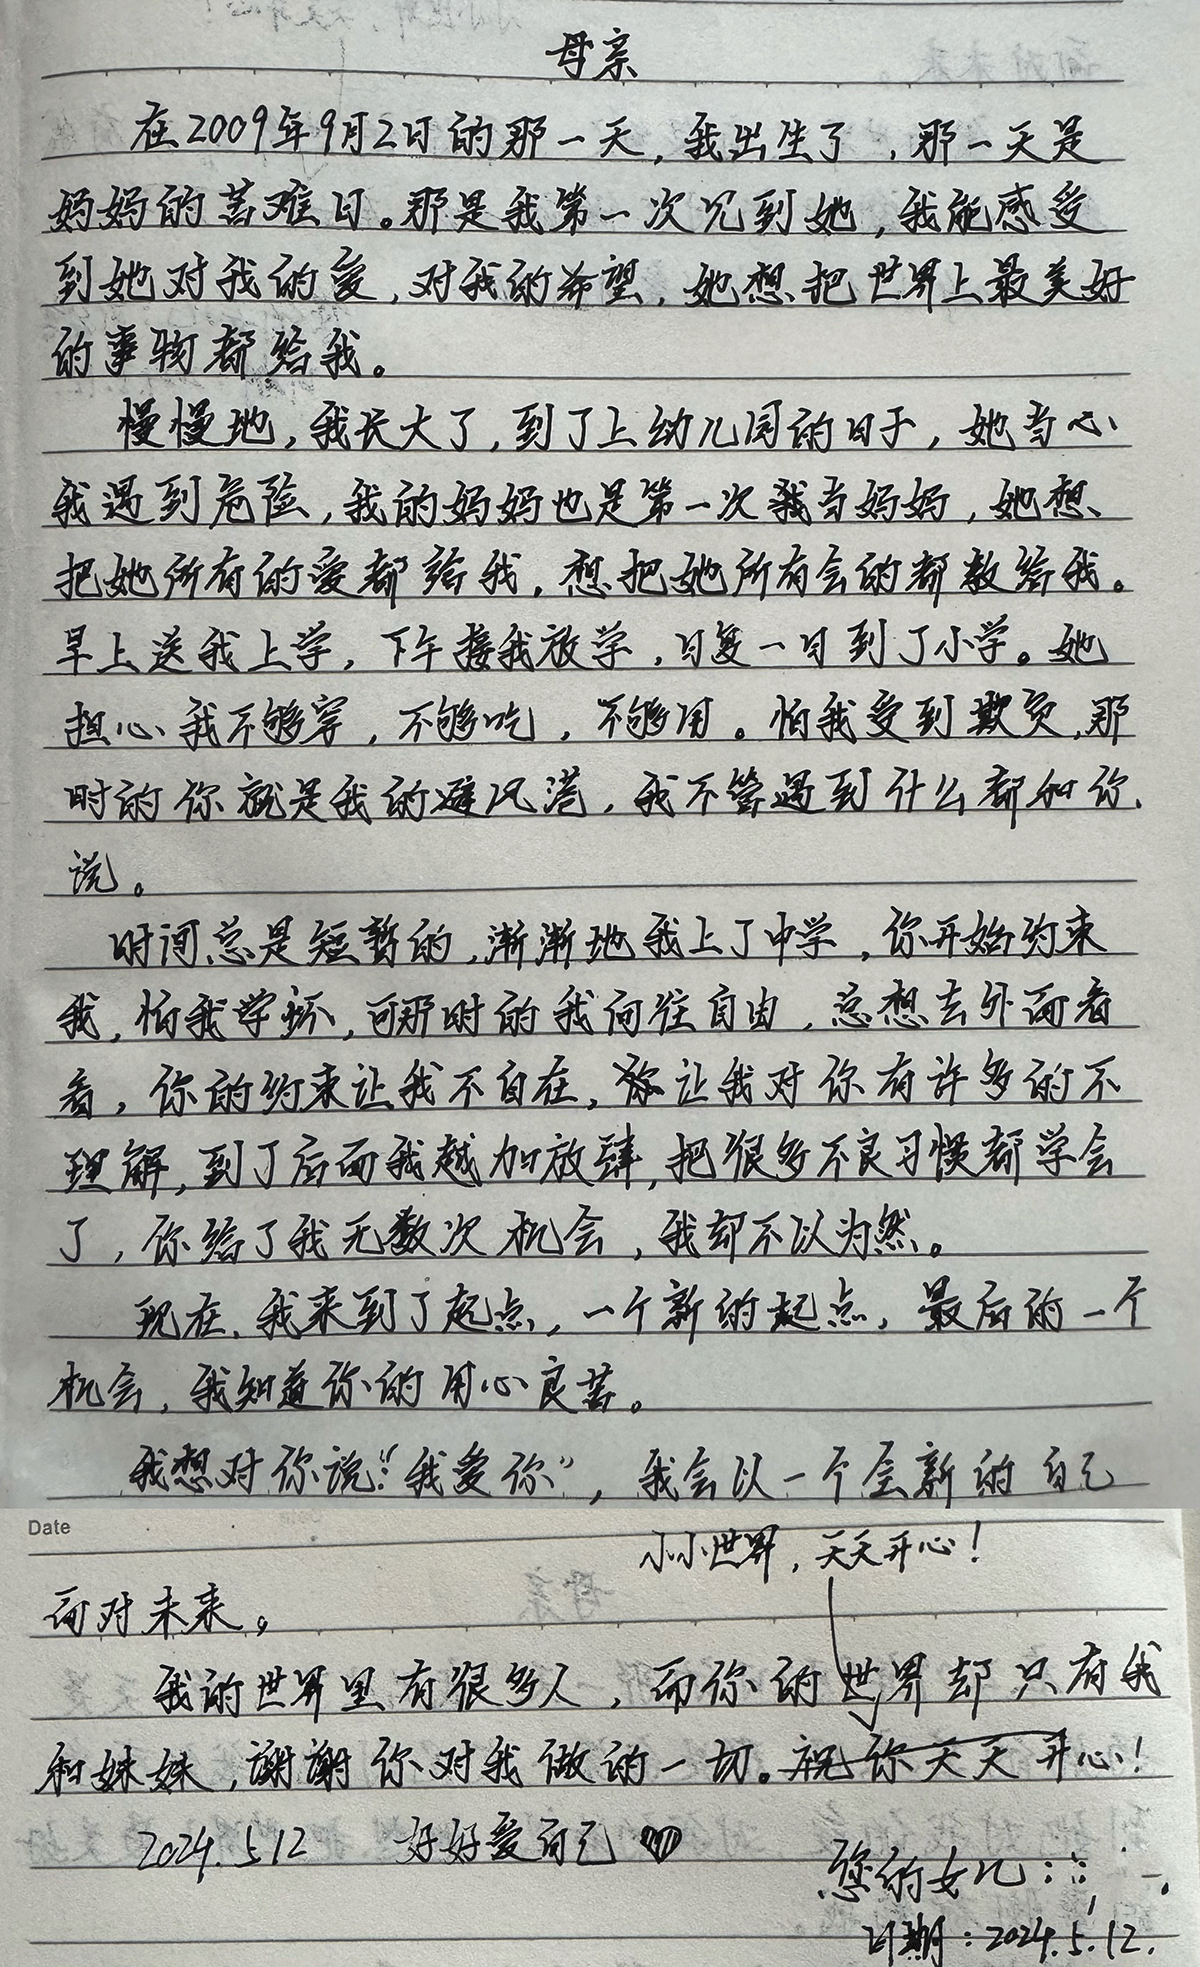 母亲
在2009年9月2日的那一天，我出生了，那一天是
妈妈的苦难日。那是我第一次见到她，我能感受
到她对我的爱，对我的希望，她想把世界上最美好
的事物都给我。
慢慢地，我长大了，到了上幼儿园的日子，她当心
我遇到危险，我的妈妈也是第一次当妈妈，她想
把她所有的爱都给我，想把她所有会的都教给我。
早上送我上学，下午接我放学，日复一日到了小学。她
担心我不够穿，不够吃，不够用。怕我受到欺负，那
时的你就是我的避风港，我不管遇到什么都和你
说。
时间总是短暂的，渐渐地我上了中学，你开始约束
我，怕我学坏，可那时的我向往自由，总想去外面看
看，你的约束让我不自在，让我对你有许多的不
理解，到了后面我越加放肆，把很多不良习惯都学会
了，你给了我无数次机会，我却不以为然。
现在，我来到了起点，一个新的起点，最后的一个
机会，我知道你的用心良苦。
我想对你说：“我爱你”，我会以一个全新的自己
Date
小小世界，天天开心！
面对未来。
我的世界里有很多人，而你的世界却只有我
和妹妹，谢谢你对我做的一切。祝你天天开心！
2024.5.12 好好爱自己
您的女儿：
日期：2024.5.12.